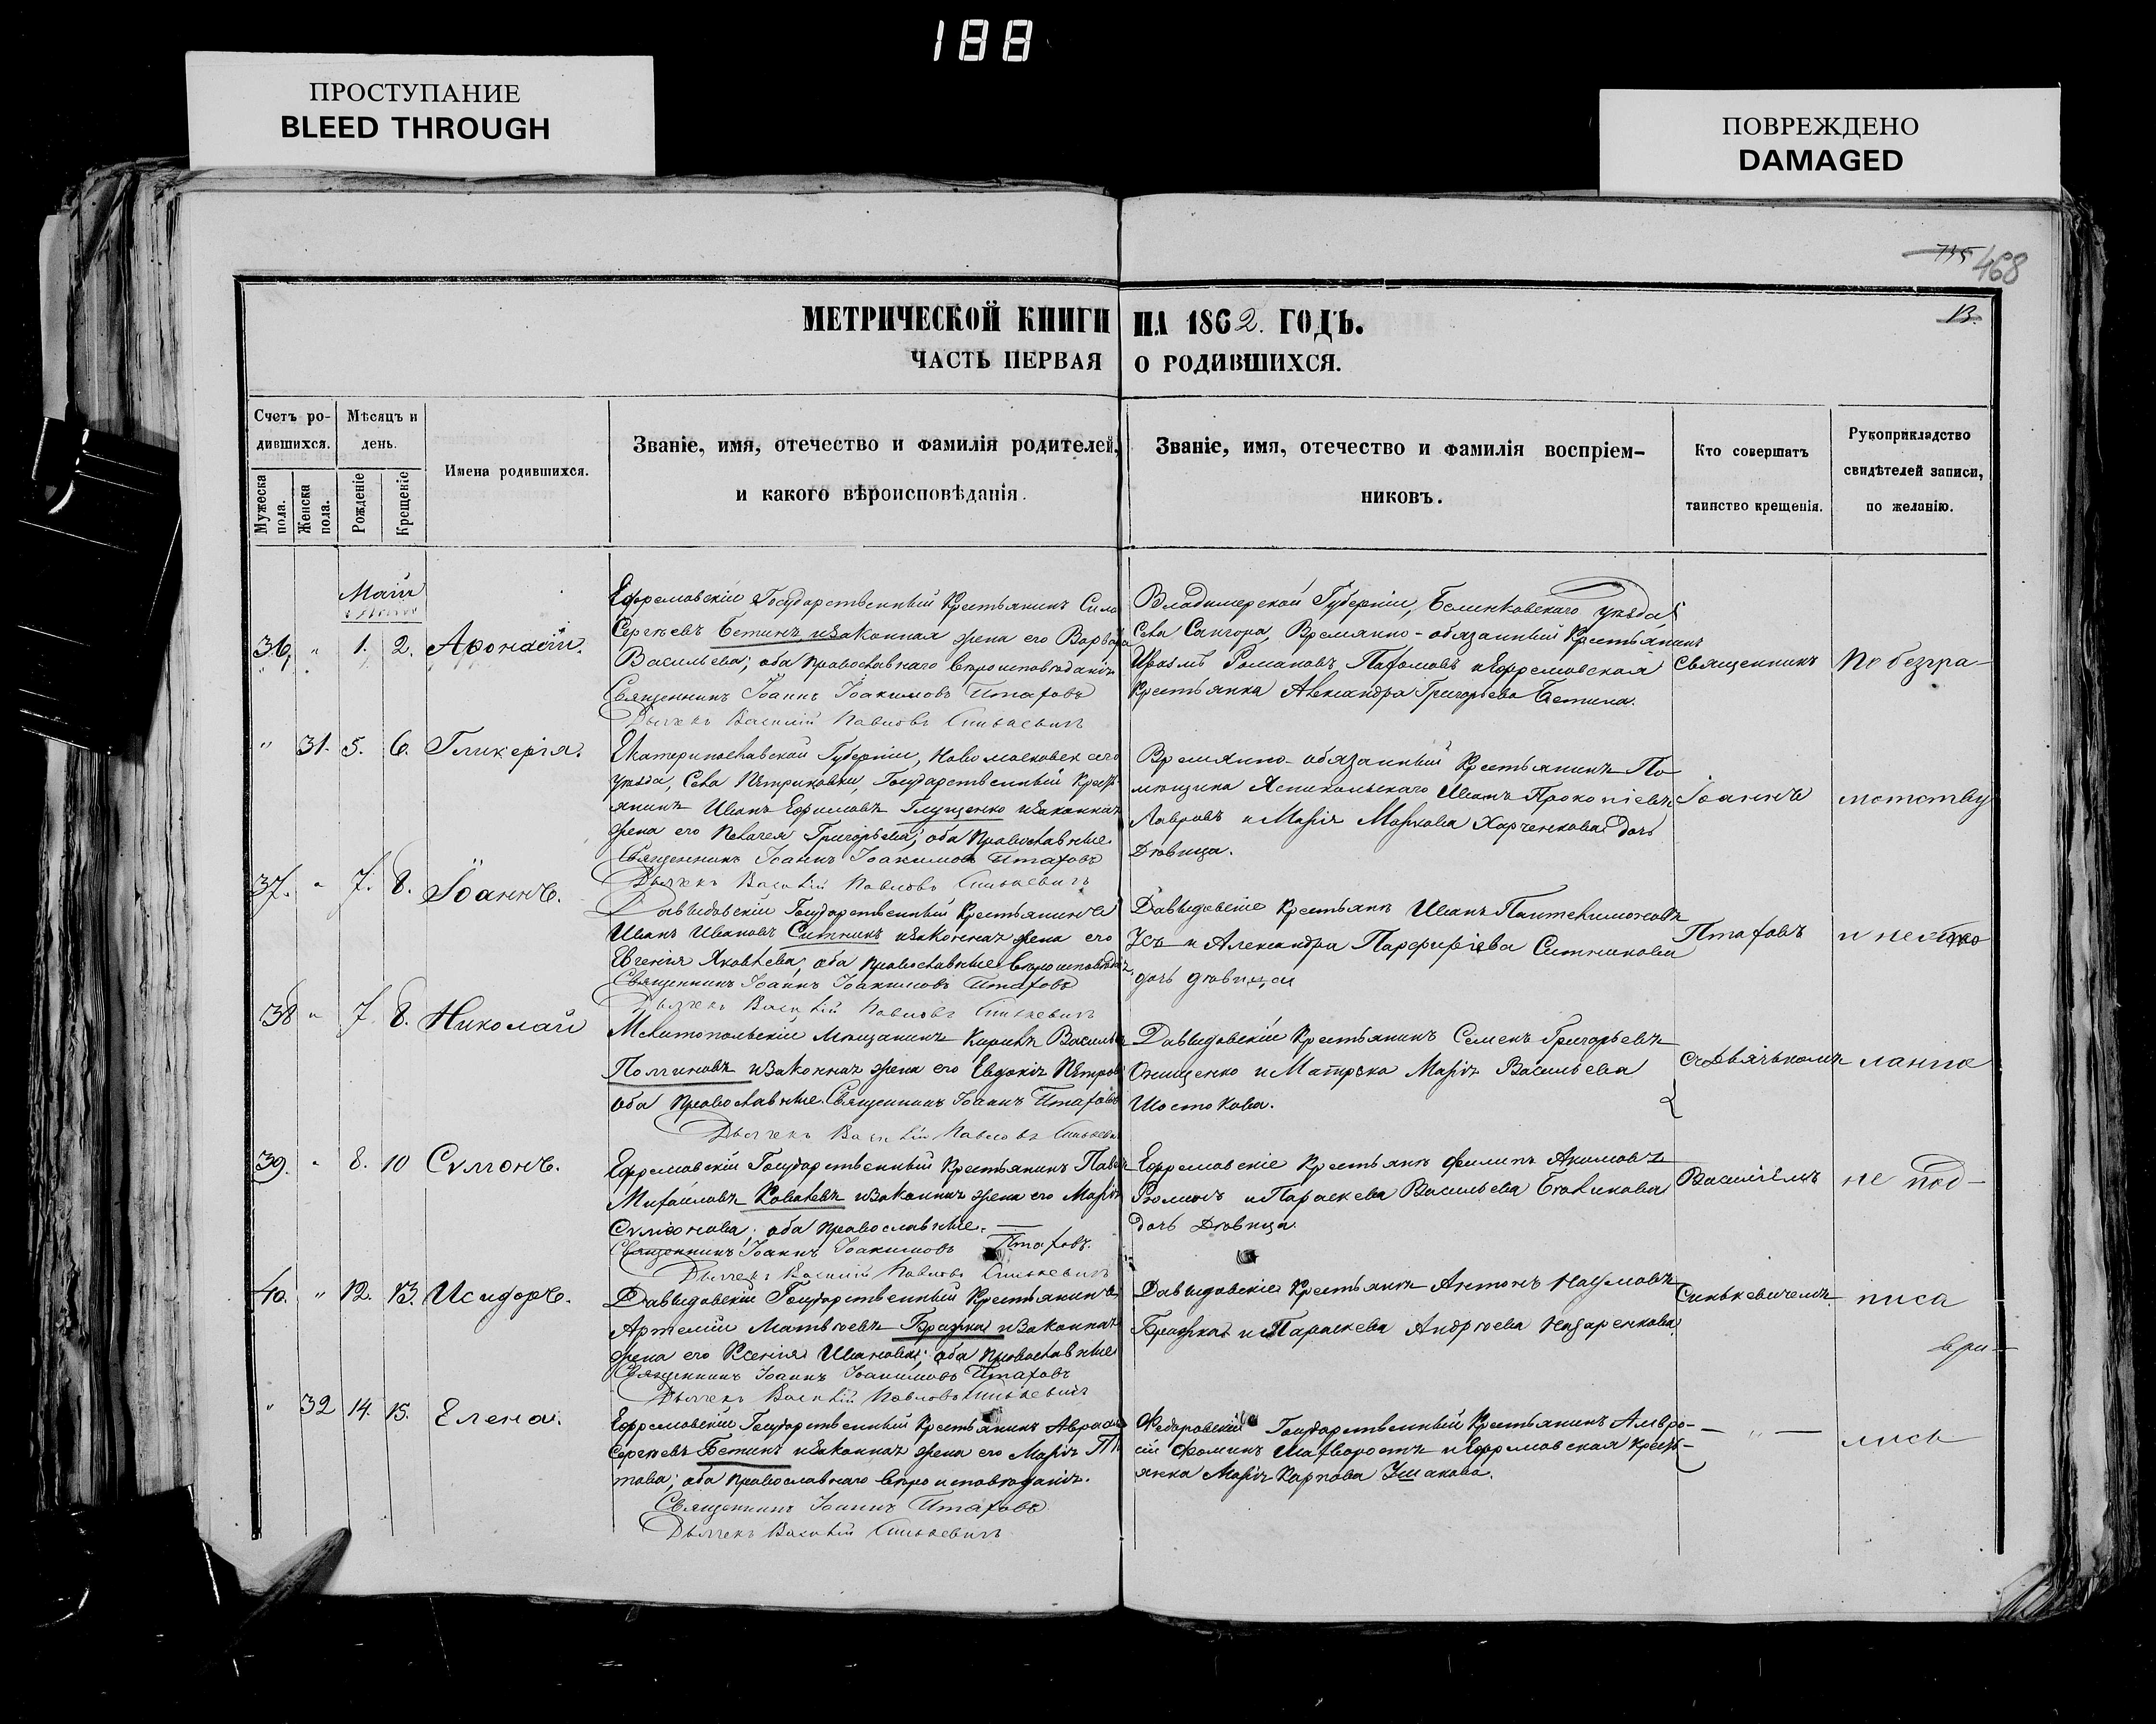 188
ПРОСТУПАНИЕ
BLEED THROUGH
ПОВРЕЖДЕНО
DAMAGED
735 468
МЕТРИЧЕСКОЙ КНИГИ НА 1862. ГОДЪ.
13.
ЧАСТЬ ПЕРВАЯ О РОДИВШИХСЯ.
Счетъ ро-
дившихся.
Мужеска пола.
Женска пола.
Мѣсяцъ и
день.
Рожденіе
Крещеніе
Имена родившихся.
Званіе, имя, отечество и фамилія родителей,
и какого вѣроисповѣданія.
Званіе, имя, отечество и фамилія воспріем-
никовъ.
Кто совершатъ
таинство крещенія.
Рукоприкладство
свидѣтелей записи,
по желанію.
Май
36, " 1. 2. Афонасій.
Ефремовскій Государственный Крестьянинъ Сила
Сергѣевъ Бетинъ изаконная жена его Варвара
Васильева; оба православнаго вѣроисповѣданія
Священникъ Іоаннъ Іоакимовъ Птаховъ
Дьячекъ Василій Павловъ Синькевичъ
Владимерской Губерніи, уѣзда
Села Сангора, Времянно-обязанный Крестьянинъ
Романовъ Пахомовъ и Ефремовская
Крестьянка Александра Григорьева Бетина.
Священникъ
По безгра-
" 31. 5. 6. Гликерія.
Екатеринославской Губерніи, Новомосковскаго
уѣзда, Села Петриковки, Государственный Крестъ
янинъ Иванъ Ефимовъ Глущенко изаконная
жена его Пелагея Григорьева; оба Православные
Священникъ Іоаннъ Іоакимовъ Птаховъ
Дьячекъ Василій Павловъ Синькевичъ
Времянно-обязанный Крестьянинъ По
мѣщика Иванъ Прокопіевъ
Лавровъ и Марія Маркова Харченкова дочь
Дѣвица.
Іоаннъ
мотству
37. " 7. 8. Іоаннъ.
Давыдовскій Государственный Крестьянинъ
Иванъ Ивановъ Ситникъ изаконная жена его
Евгенія Яковлева, оба православные вѣроисповѣдан.
Священникъ Іоаннъ Іоакимовъ Птаховъ
Дьячекъ Василій Павловъ Синькевичъ
Давыдовскіе Крестьяне Иванъ Пантелимоновъ
Усъ и Александра Парфиріева Ситникова
дочь дѣвица
Птаховъ
38 " 7. 8. Николай
Мелитопольскій Мѣщанинъ Кирилъ Васильевъ
изаконная жена его Евдокія Петрова
оба Православные. Священникъ Іоаннъ Птаховъ
Дьячекъ Василій Павловъ Синькевичъ
Давыдовскій Крестьянинъ Семенъ Григорьевъ
Онищенко и Матрска Марія Васильева
Шостокова.
съ Дьячькомъ
39. " 8. 10 Сѵмонъ.
Ефремовскій Государственный Крестьянинъ Павелъ
Михайловъ Ковалевъ изаконная жена его Марія
Сѵмонова; оба православные.
Священникъ Іоаннъ Іоакимовъ Птаховъ.
Дьячекъ Василій Павловъ Синькевичъ
Ефремовскіе Крестьяне Филипъ Акимовъ
и Параскева Васильева Бѣликова
дочь Дѣвица.
Василіемъ
не под-
40. " 12. 13. Исидоръ.
Давыдовскій Государственный Крестьянинъ
Артемій Матвѣевъ Бражка изаконная
жена его Ксенія Иванова; оба Православные
Священникъ Іоаннъ Іоакимовъ Птаховъ
Дьячекъ Василій Павловъ Синькевичъ
Давыдовскіе Крестьяне Антонъ Наумовъ
Бражка и Параскева Андрѣева Назаренкова.
Синькевичемъ
писа
" 32 14. 15. Елена.
Ефремовскій Государственный Крестьянинъ Авраамъ
Сергѣевъ Бетинъ изаконная жена его Марія Ти
това; оба православнаго вѣроисповѣданія.
Священникъ Іоаннъ Птаховъ
Дьячекъ Василій Синькевичъ
Федоровскій Государственный Крестьянинъ Амвро-
сій Фоминъ и Ефремовская крестъ-
янка Марія Карпова Ушакова.
— " —
лись